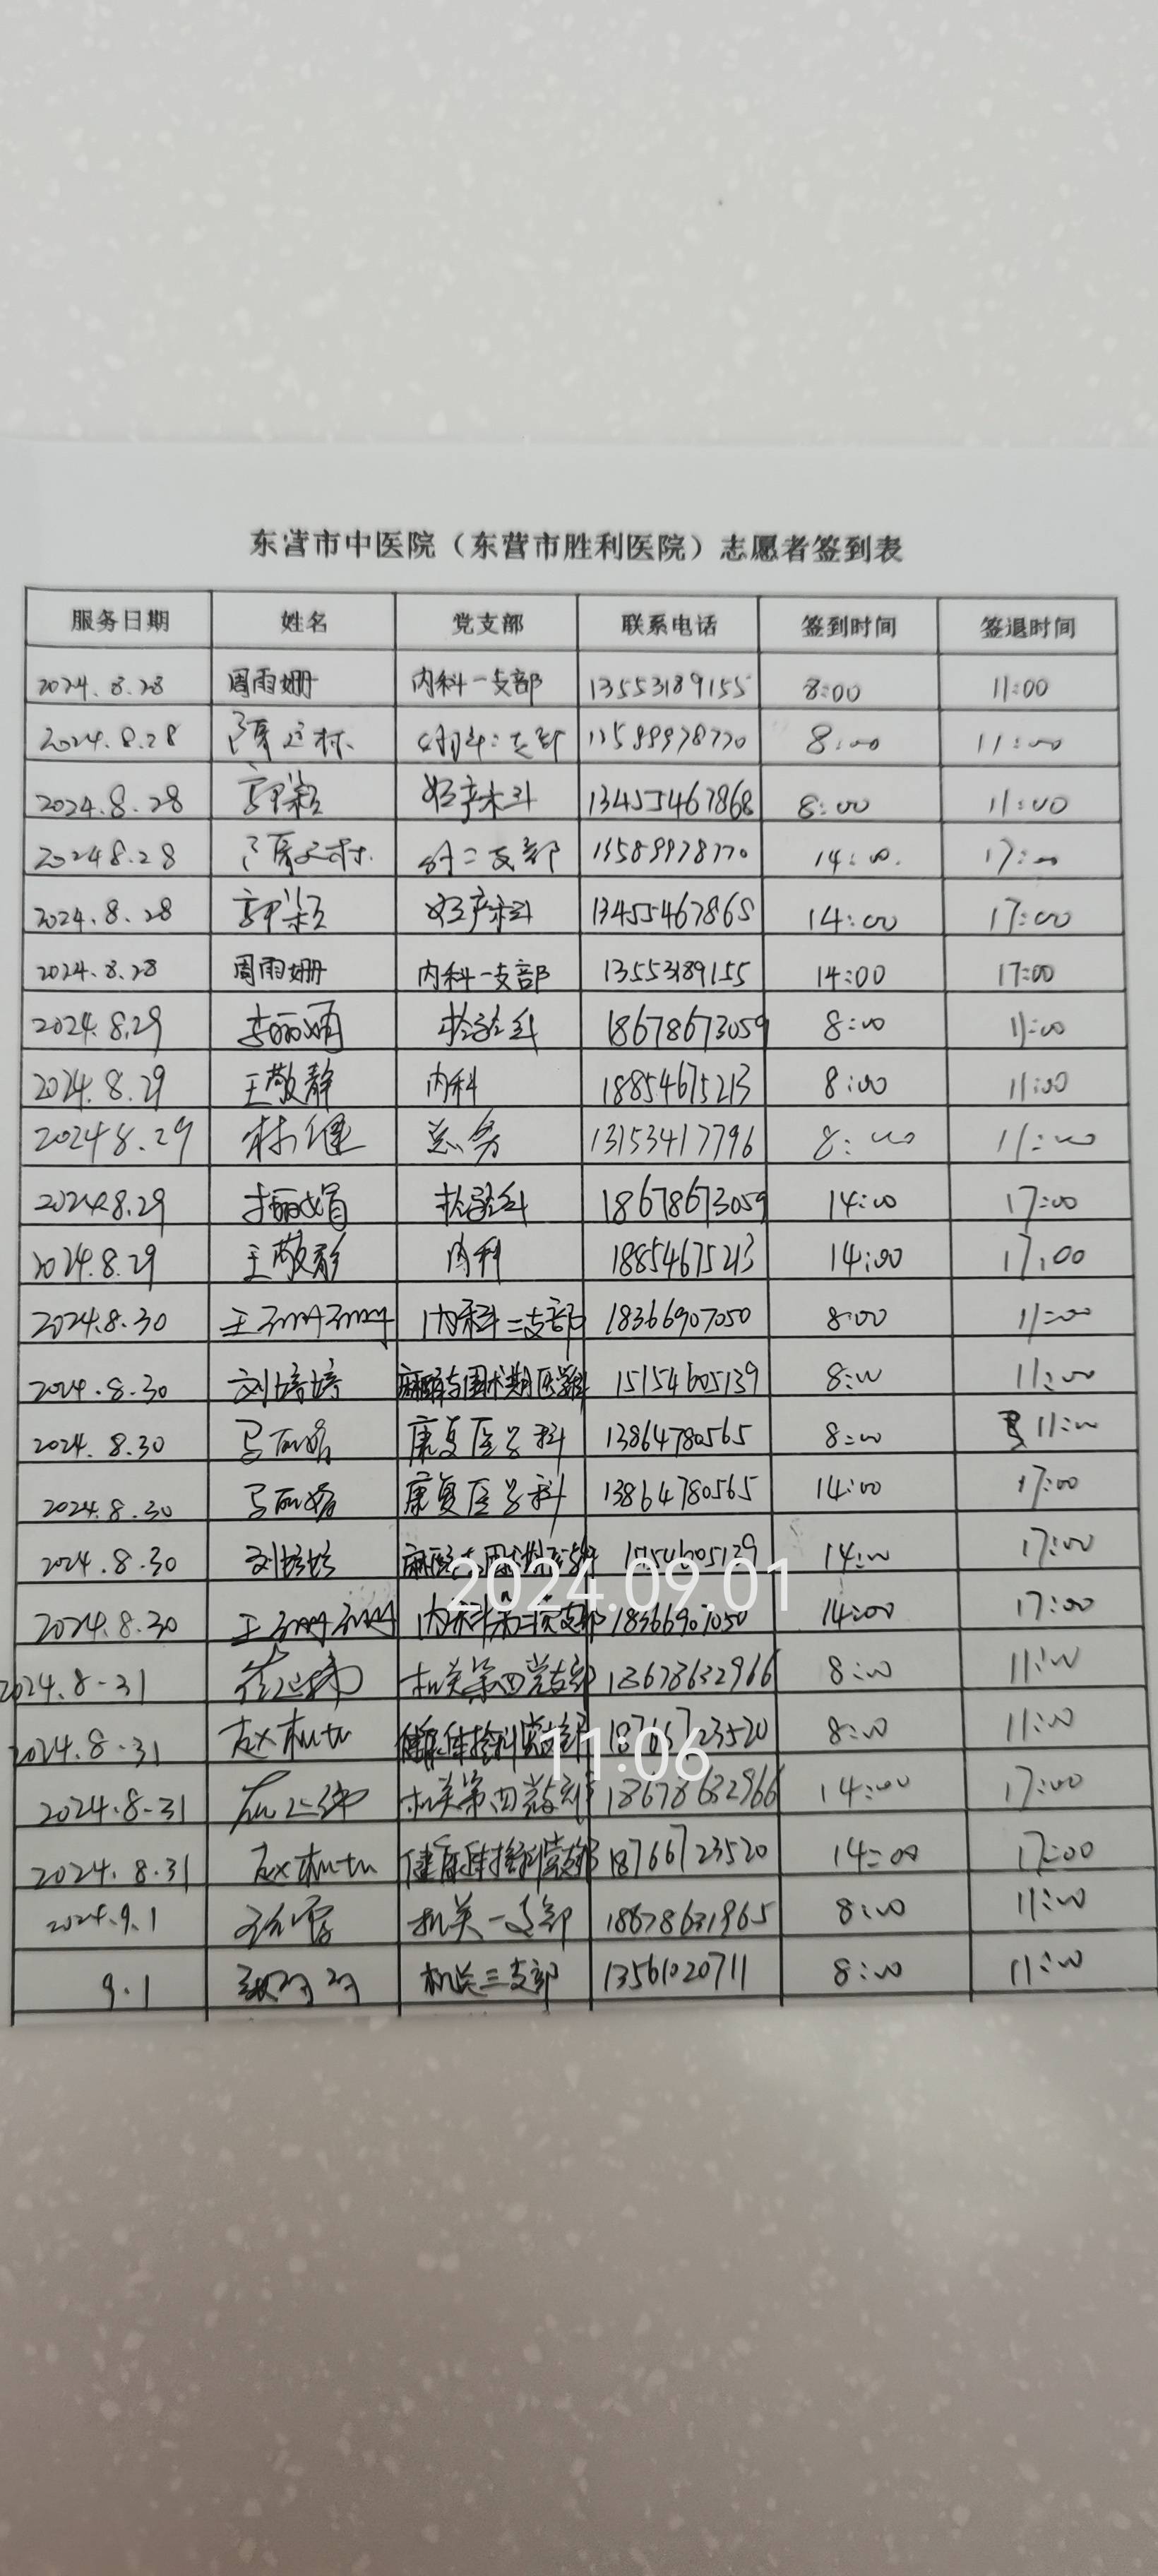 东营市中医院（东营市胜利医院）志愿者签到表
服务日期 姓名 党支部 联系电话 签到时间 签退时间
2024.8.28 周雨姗 内科一支部 13553189155 8:00 11:00
2024.8.28 支部 13589978770 8:00 11:00
2024.8.28 郭颖 妇产科 13455467868 8:00 11:00
2024 8.28 外二支部 13589978770 14:00. 17:00
2024.8.28 郭颖 妇产科 13455467868 14:00 17:00
2024.8.28 周雨姗 内科一支部 13553189155 14:00 17:00
2024.8.29 李丽娟 检验科 18678673059 8:00 11:00
2024.8.29 王敬静 内科 18854675213 8:00 11:00
2024 8.29 林健 总务 13153417796 8:00 11:00
2024.8.29 检验科 18678673059 14:00 17:00
2024.8.29 王敬静 内科 18854675213 14:00 17:00
2024.8.30 王珊珊 内科二支部 18366907050 8:00 11:00
2024.8.30 刘培培 麻醉与围术期医学科 15154605139 8:00 11:00
2024.8.30 马丽娟 康复医学科 13864780565 8:00 11:00
2024.8.30 马丽娟 康复医学科 13864780565 14:00 17:00
2024.8.30 刘培培 14:00 17:00
2024.09.01
2024.8.30 王珊珊 18366907050 14:00 17:00
2024.8-31 机关第四党支部 18678632966 8:00 11:00
2024.8.31 赵 健康体检科党支部 18766723520 8:00 11:00
11:06
2024.8-31 机关第四党支部 18678632966 14:00 17:00
2024.8.31 赵 健康体检科党支部 18766723520 14:00 17:00
2024.9.1 机关一支部 18678631965 8:00 11:00
9.1 机关三支部 13561020711 8:00 11:00